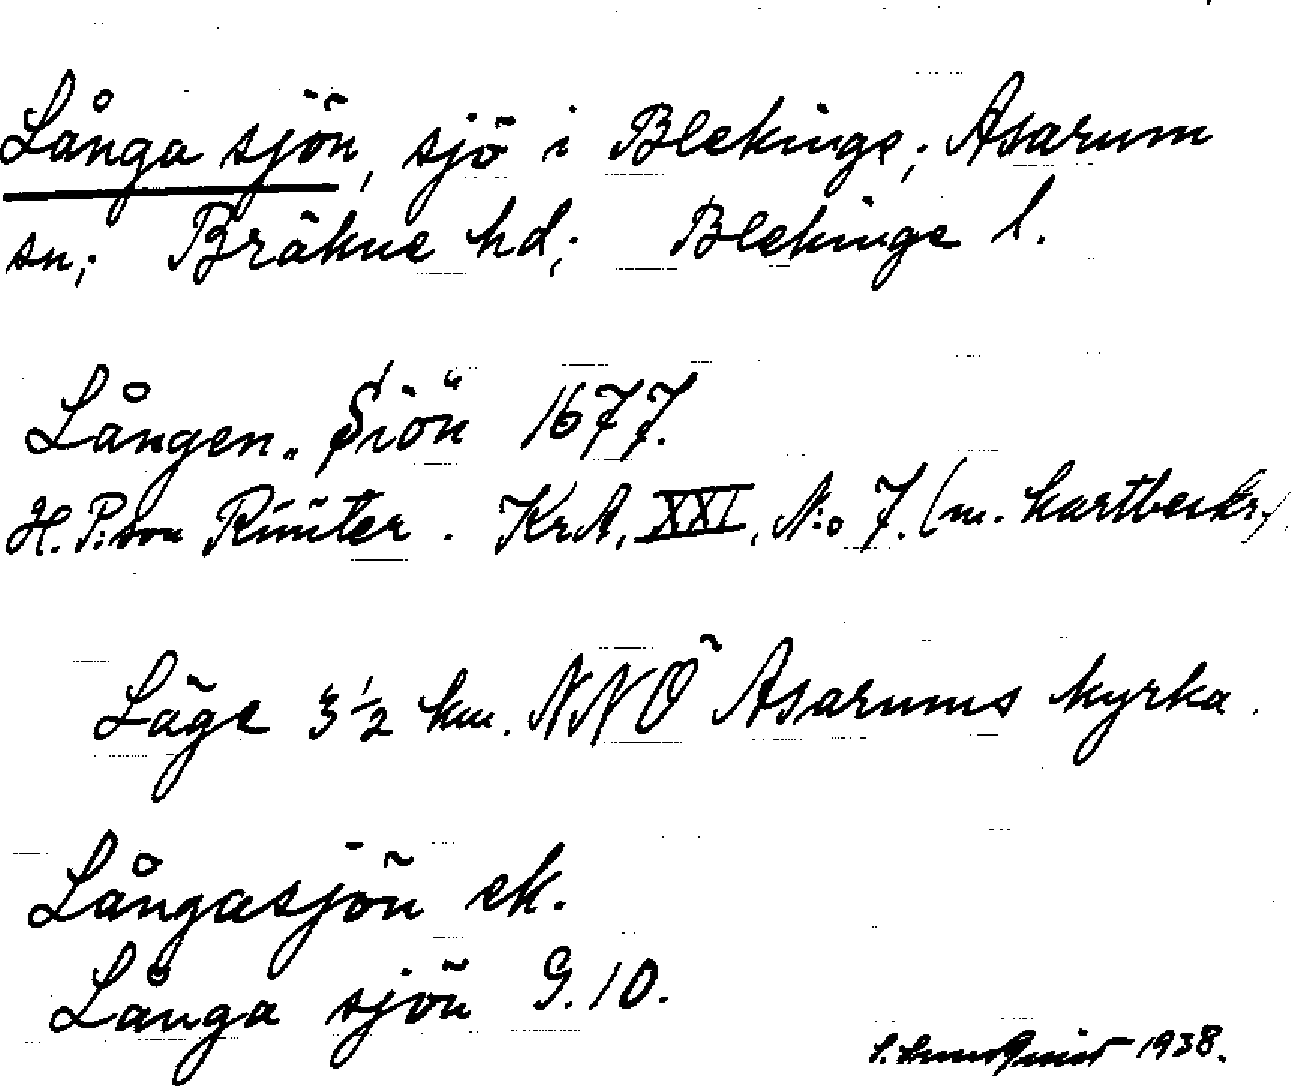 Långa sjön, sjö i Blekinge; Asarum
sn; Bräkne hd; Blekinge l.
Lången„ Siön 1677.
H. P:son Rüüter. KrA, XXI, N:o 7. (m. kartbeskr.)
Läge 3 1/2 km. NNÖ Asarums kyrka.
Långasjön ek.
Långa sjön G. 10.
1938.